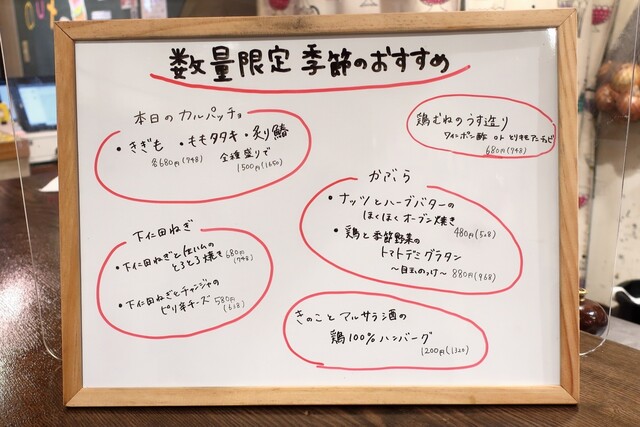 数量限定 季節のおすすめ
本日のカルパッチョ
・きぎも ・ももタタキ ・炙り鰆
各680円(748) 全種盛りで
1500円(1650)
鶏むねのうす造り
ワインポン酢 or とりキモアンチョビ
680円(748)
かぶら
・ナッツとハーブバターの
ほくほくオーブン焼き
480円(528)
・鶏と季節野菜の
トマトデミグラタン
〜目玉のっけ〜 880円(968)
下仁田ねぎ
・下仁田ねぎと生ハムの
とろとろ焼き 680円
(748)
・下仁田ねぎとチャンジャの
ピリ辛チーズ 580円
(638)
きのことマルサラ酒の
鶏100%ハンバーグ
1200円(1320)